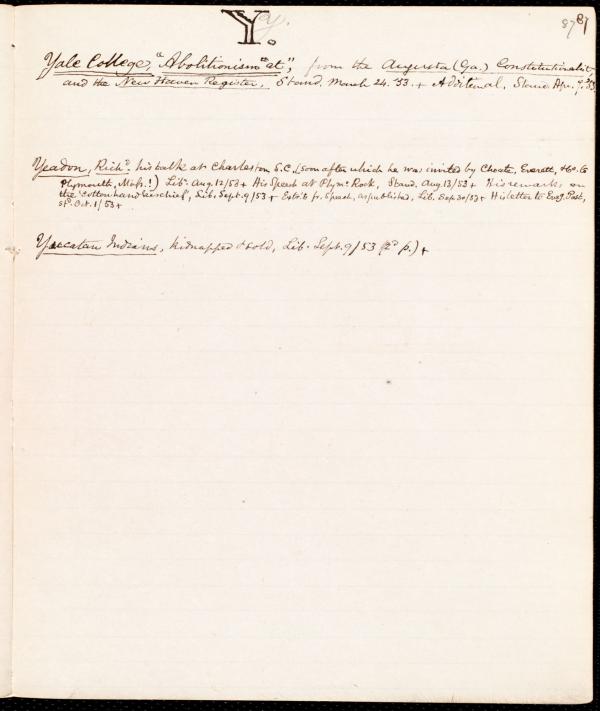 Y.
87
Yale College, "Abolitionism at", from the Augusta (Ga.) Constitutionalist,
and the New Haven Register, Stand. March 24. '53. + Additional, Stand. Apr. 7, 53
Yeadon, Richd. his talk at Charleston S.C. (soon after which he was invited by Choate, Everett, &c. to
Plymouth, Mass.!) Lib. Aug. 12/53 + His Speech at Plym. Rock, Stand. Aug. 13/53 + His remarks on
the cotton handkerchief, Lib. Sept. 9/53 + Extr. fr. Speech, as published, Lib. Sep. 30/53 + His letter to Evg. Post,
Oct. 1/53 +
Yucatan Indians, kidnapped & sold, Lib. Sept. 9/53 (2d p.) +